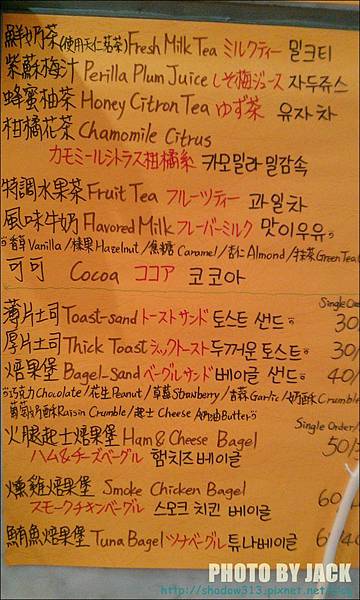 鮮奶茶(使用天仁茗茶)Fresh Milk Tea ミルクティー 밀크티
紫蘇梅汁 Perilla Plum Juice しそ梅ジュース 자두쥬스
蜂蜜柚茶 Honey Citron Tea ゆず茶 유자차
柑橘花茶 Chamomile Citrus
カモミールシトラス柑橘系 카모밀라밀감속
特調水果茶 Fruit Tea フルーツティー 과일차
風味牛奶 Flavored Milk フレーバーミルク 맛이우유
香草Vanilla/榛果Hazelnut/焦糖Caramel/杏仁Almond/抹茶Green Tea
可可 Cocoa ココア 코코아
Single Order
薄片土司Toast-sand トーストサンド 토스트 샌드 30
厚片土司Thick Toast シックトースト 두꺼운토스트 30/
焙果堡 Bagel-Sand ベーグルサンド 베이글 샌드 40/
巧克力Chocolate/花生Peanut/草莓Strawberry/香蒜Garlic/奶酥Crumble
葡萄奶酥Raisin Crumble/起士Cheese 奶油Butter
Single Order/
火腿起士焙果堡 Ham & Cheese Bagel 50/
ハム&チーズベーグル 햄치즈베이글
燻雞焙果堡 Smoke Chicken Bagel
スモークチキンベーグル 스모크 치킨 베이글 60
鮪魚焙果堡 Tuna Bagel ツナベーグル 튜나베이글
PHOTO BY JACK
http://shadow513.pixnet.net/blog